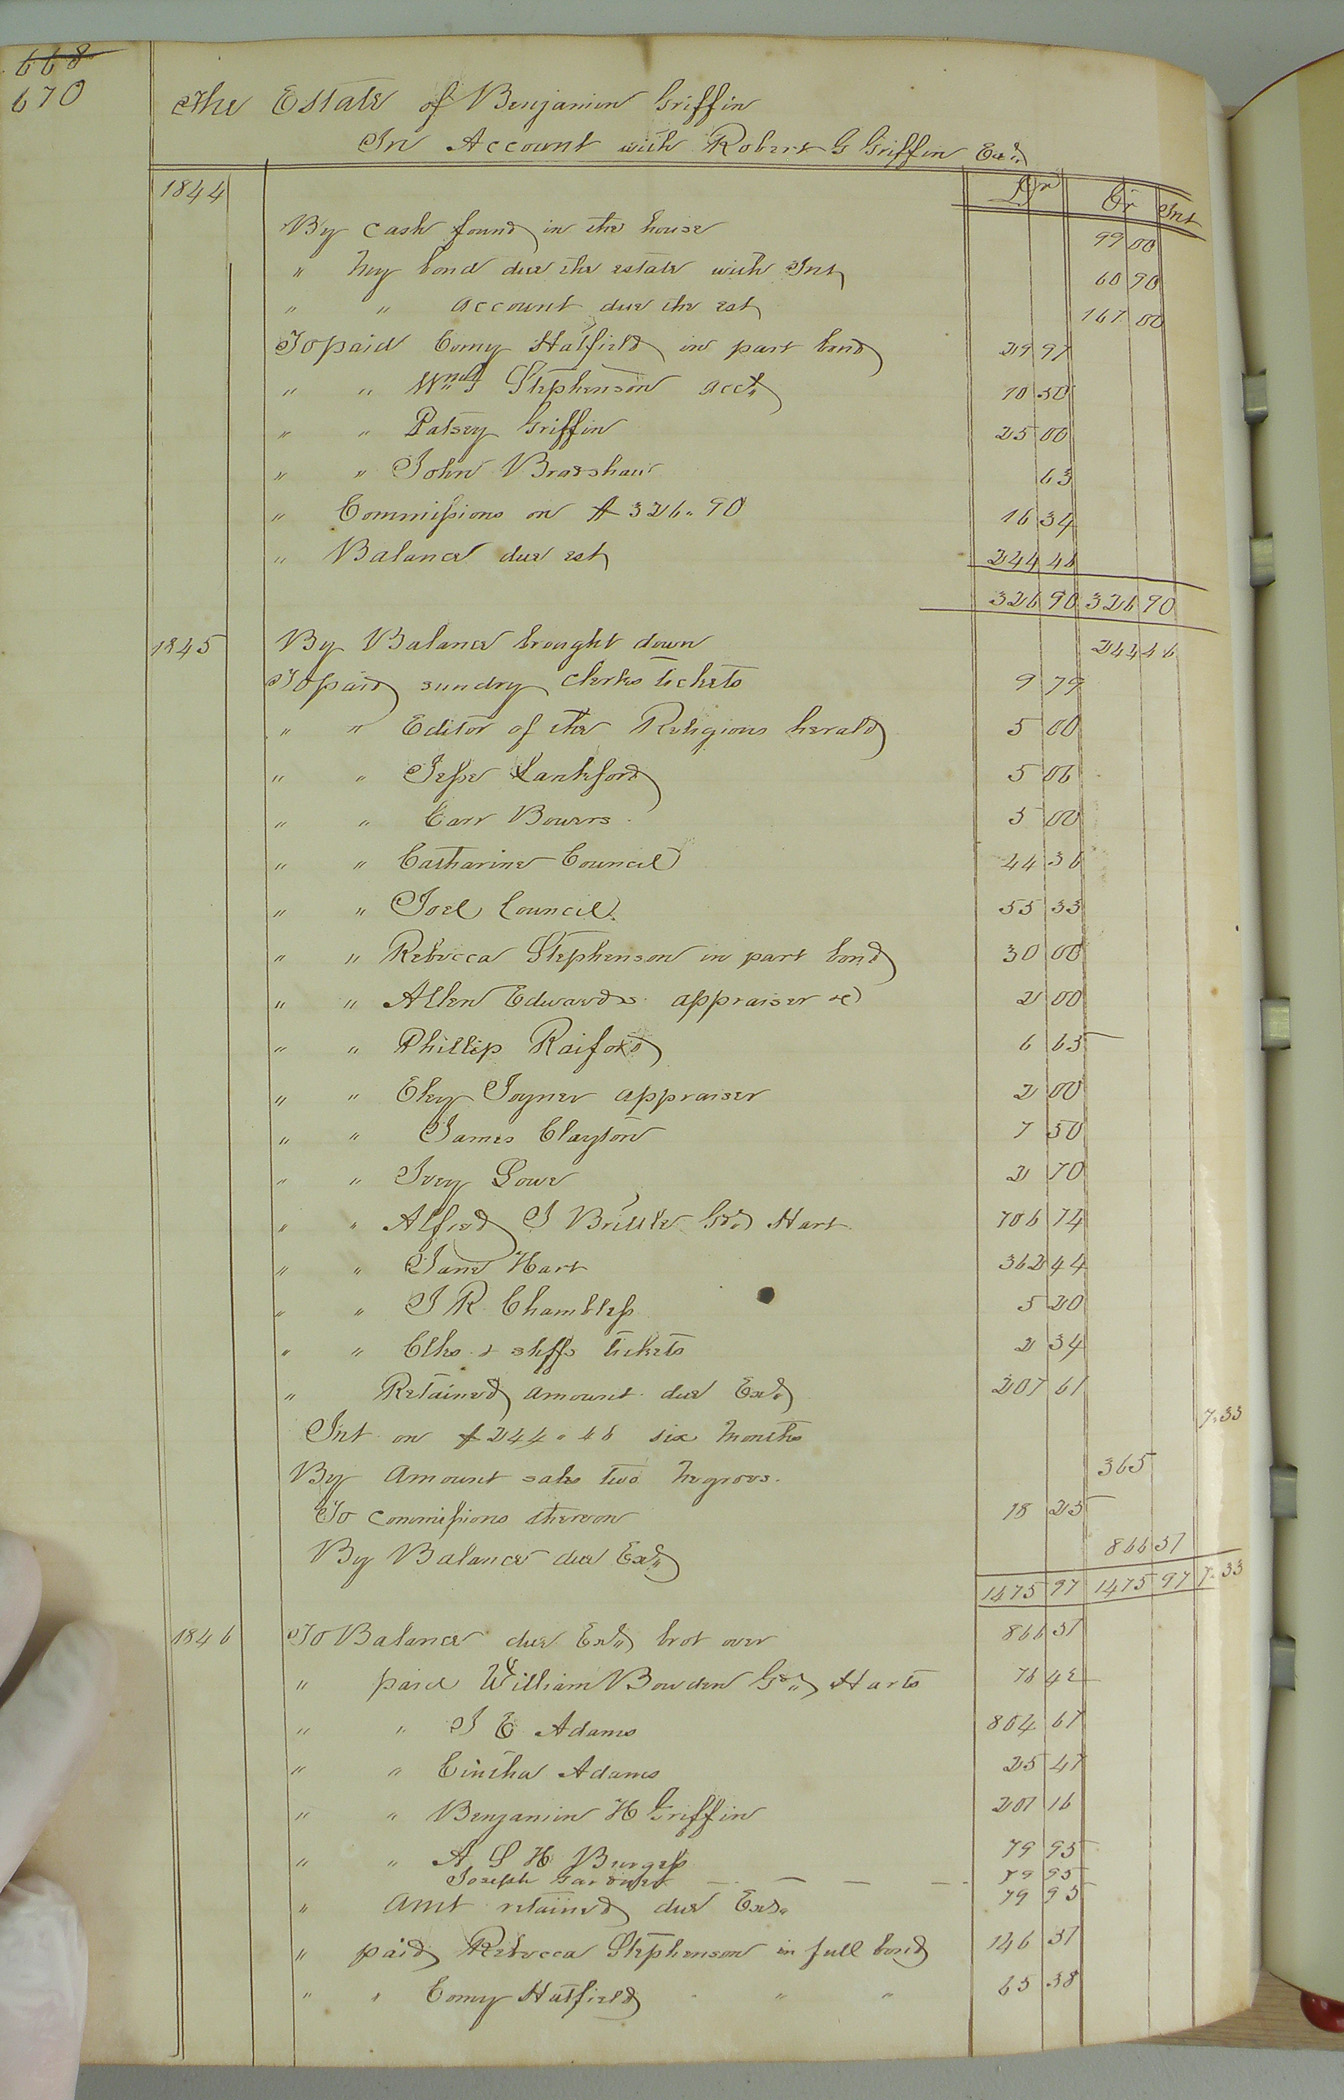 668
670
The Estate of Benjamin Griffin
In Account with Robert G Griffin Exr.
1844 Dr Cr Int
By cash found in the house 99 00
" my bond due the estate with Int 60 90
" " account due the est 167 00
To paid Comy Hatfield in part bond 29 97
" " Stephenson acct. 10 50
" " Patsey Griffin 25 00
" " John Bradshaw 63
" Commissions on $326.90 16 34
" Balance due est 244 46
326 90 326 90
1845 By Balance brought down 244 46
To paid sundry Clerks tickets 9 79
" " Editor of the Religious herald 5 00
" " Jesse Lankford 5 06
" " Carr Bowers 5 00
" " Catharine Council 44 36
" " Joel Council 55 33
" " Rebecca Stephenson in part bond 30 00
" " Allen Edwards appraiser &c 2 00
" " Phillip Raiford 6 65
" " Eley Joyner appraiser 2 00
" " James Clayton 7 50
" " Ivey Lowe 2 70
" " Alfred J Brittle Gdn Hart 706 74
" " Jane Hart 362 44
" " J R Chambless 5 20
" " Clks & shffs tickets 2 34
" Retained amount due Exr. 207 61
Int on $244.46 six months 7.33
By Amount sales two negroes. 365
To commissions thereon 18 25
By Balance due Exr. 866 51
1475 97 1475 97 7.33
1846 To Balance due Exr. brot over 866 51
" paid William Bowden Gdn. Harts 76 42
" " J E Adams 864 67
" " Cintha Adams 25 47
" " Benjamin H Griffin 207 16
" " A S H Burgess 79 95
Joseph Gardner 79 95
" Amt retained due Exr. 79 95
" paid Rebecca Stephenson in full bond 146 51
" " Comy Hatfield " " 65 38